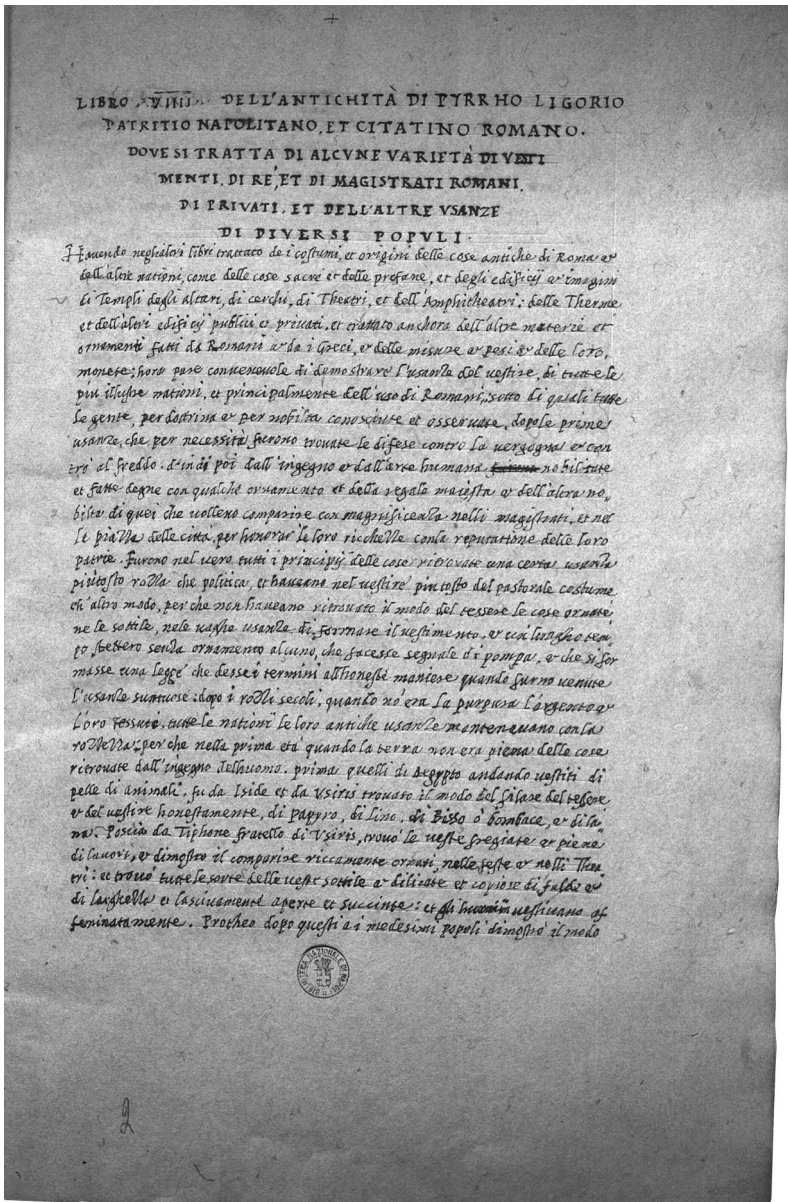 LIBRO . VIIII . DELL'ANTICHITÀ DI PYRRHO LIGORIO
PATRITIO NAPOLITANO, ET CITATINO ROMANO.
DOVE SI TRATTA DI ALCVNE VARIETÀ DI VESTI
MENTI, DI RE, ET DI MAGISTRATI ROMANI,
DI PRIVATI, ET DELL'ALTRE VSANZE
DI DIVERSI POPULI.
Havendo negl'altri libri trattato de i costumi, et origini delle cose antiche di Roma et
dell'altre nationi, come delle cose sacre et delle profane, et degli edificij et imagini
di Templi degli altari, di cerchi, di Theatri, et dell'Amphitheatri: delle Therme
et dell'altri edificij publici et privati, et trattato anchora dell'altre materie et
ornamenti fatti da Romani et da i Greci, et delle misure et pesi et delle loro
monete; hora pare convenevole di demostrare l'usanza del vestire, di tutte le
piu illustre nationi, et principalmente dell'uso di Romani, sotto di quali tutte
le gente, per dottrina et per nobilta conosciute et osservate, dopo le prime
usanze, che per necessità furono trovate le difese contro la vergogna et con
tro al freddo. d'indi poi dall'ingegno et dall'arte humana furono nobilitate
et fatte degne con qualche ornamento et della regale maiesta et dell'altra no,
bilta di quei che volleno comparire con magnificenza nelli magistrati, et nel
le piazza delle città, per honorar' le loro ricchezze con la reputatione delle loro
patrie. Furono nel vero tutti i principij delle cose ritrovate una certa usanza
piutosto rozza che politica, et haveano nel vestire piutosto del pastorale costume
ch'altro modo, per che non haveano ritrovato il modo del tessere le cose ornate
ne le sottile, nele vaghe usanze di formare il vestimento. et un lungho tem,
po stettero senza ornamento alcuno, che facesse segnale di pompa, et che si for
masse una legge che desse i termini all'honeste maniere quando furno venute
l'usanze suntuose: dopo i rozzi secoli, quando nō era la purpura l'argento et
l'oro tessute. tutte le nationi le loro antiche usanze mantenevano con la
rozzezza; per che nella prima età quando la terra non era piena delle cose
ritrovate dall'ingegno dell'huomo. prima quelli di Aegypto andando vestiti di
pelle di animali. fu da Iside et da Usiris trovato il modo del filare del tessere
et del vestire honestamente, di papyro, di Lino, di Bisso o bombace, et di la,
na. Poscia da Tiphone fratello di Usiris, trovò le veste fregiate et piene
di lavori, et dimostro il comparire riccamente ornati, nelle feste et nelli Thea
tri: et trovò tutte le sorte delle veste sottile et dilicate et copiose di falde et
di larghezza et lascivamente aperte et succinte: et gli huomini vestivano ef
feminatamente. Protheo dopo questi a i medesimi popoli dimostrò il modo
BIBLIOTECA NAZIONALE DI NAPOLI
2